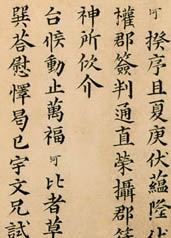 可揆序且夏庚伏蘊隆伏
權郡簽判通直榮攝郡符
神所佽介
台候動止萬福可比者草
巽荅慰懌曷已宇文兄試